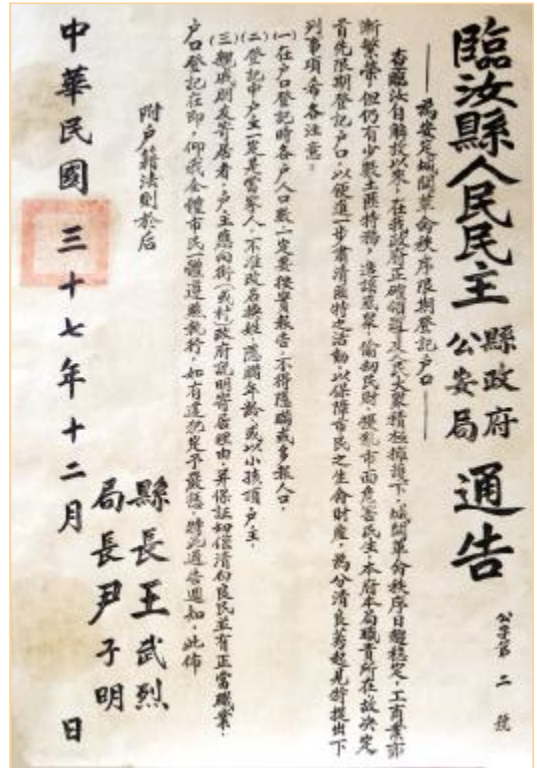 臨汝縣人民民主縣政府公安局通告
公字第二號
——為安定城關革命秩序限期登記户口——
查臨汝自解放以來，在我政府正確領導及人民大眾積極擁護下，城關革命秩序日趨穩定，工商業亦
漸繁榮，但仍有少數土匪特務，造謠惑眾，偷劫民財，擾亂市面危害民生，本府本局職責所在，故決定
首先限期登記户口，以便進一步肅清匪特之活動，以保障市民之生命財產，為分清良莠起見，特提出下
列事項，希各注意：
(一)在户口登記時各户人口數一定要按實報告，不得隱瞞或多報人口，
(二)登記中户主一定是當家人，不准改名換姓，隱瞞年齡，或以小孩頂户主，
(三)親戚朋友寄居者，户主應向街(或村)政府說明寄居理由，并保証切係清白良民並有正當職業，
户口登記在即，仰我全體市民一體遵照執行，如有違犯定予嚴懲，特此通告週知，此佈
附户籍法則於后
縣長王武烈
局長尹子明
中華民國三十七年十二月 日